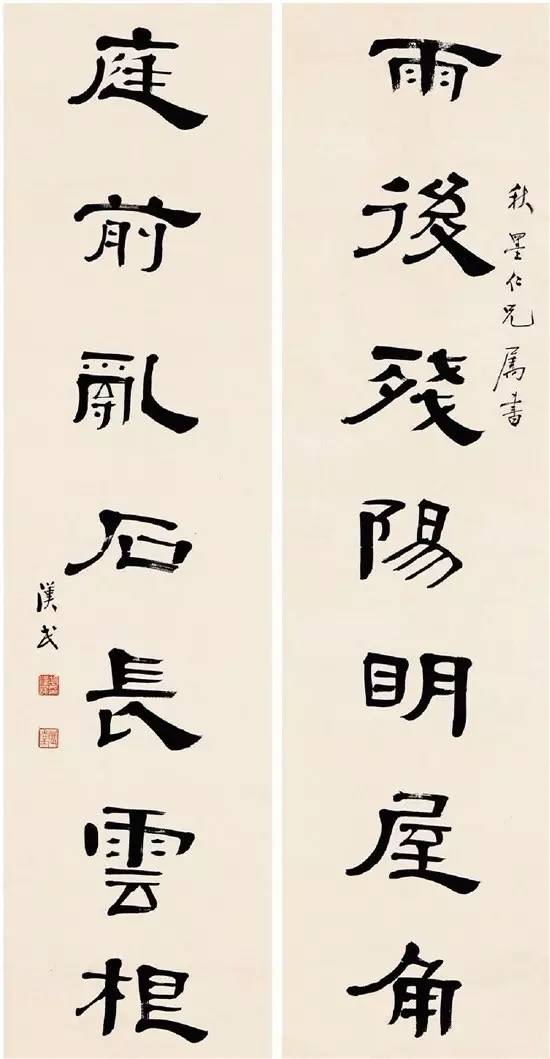 秋墨仁兄屬書
雨後殘陽眀屋角
庭前亂石長雲根
漢民